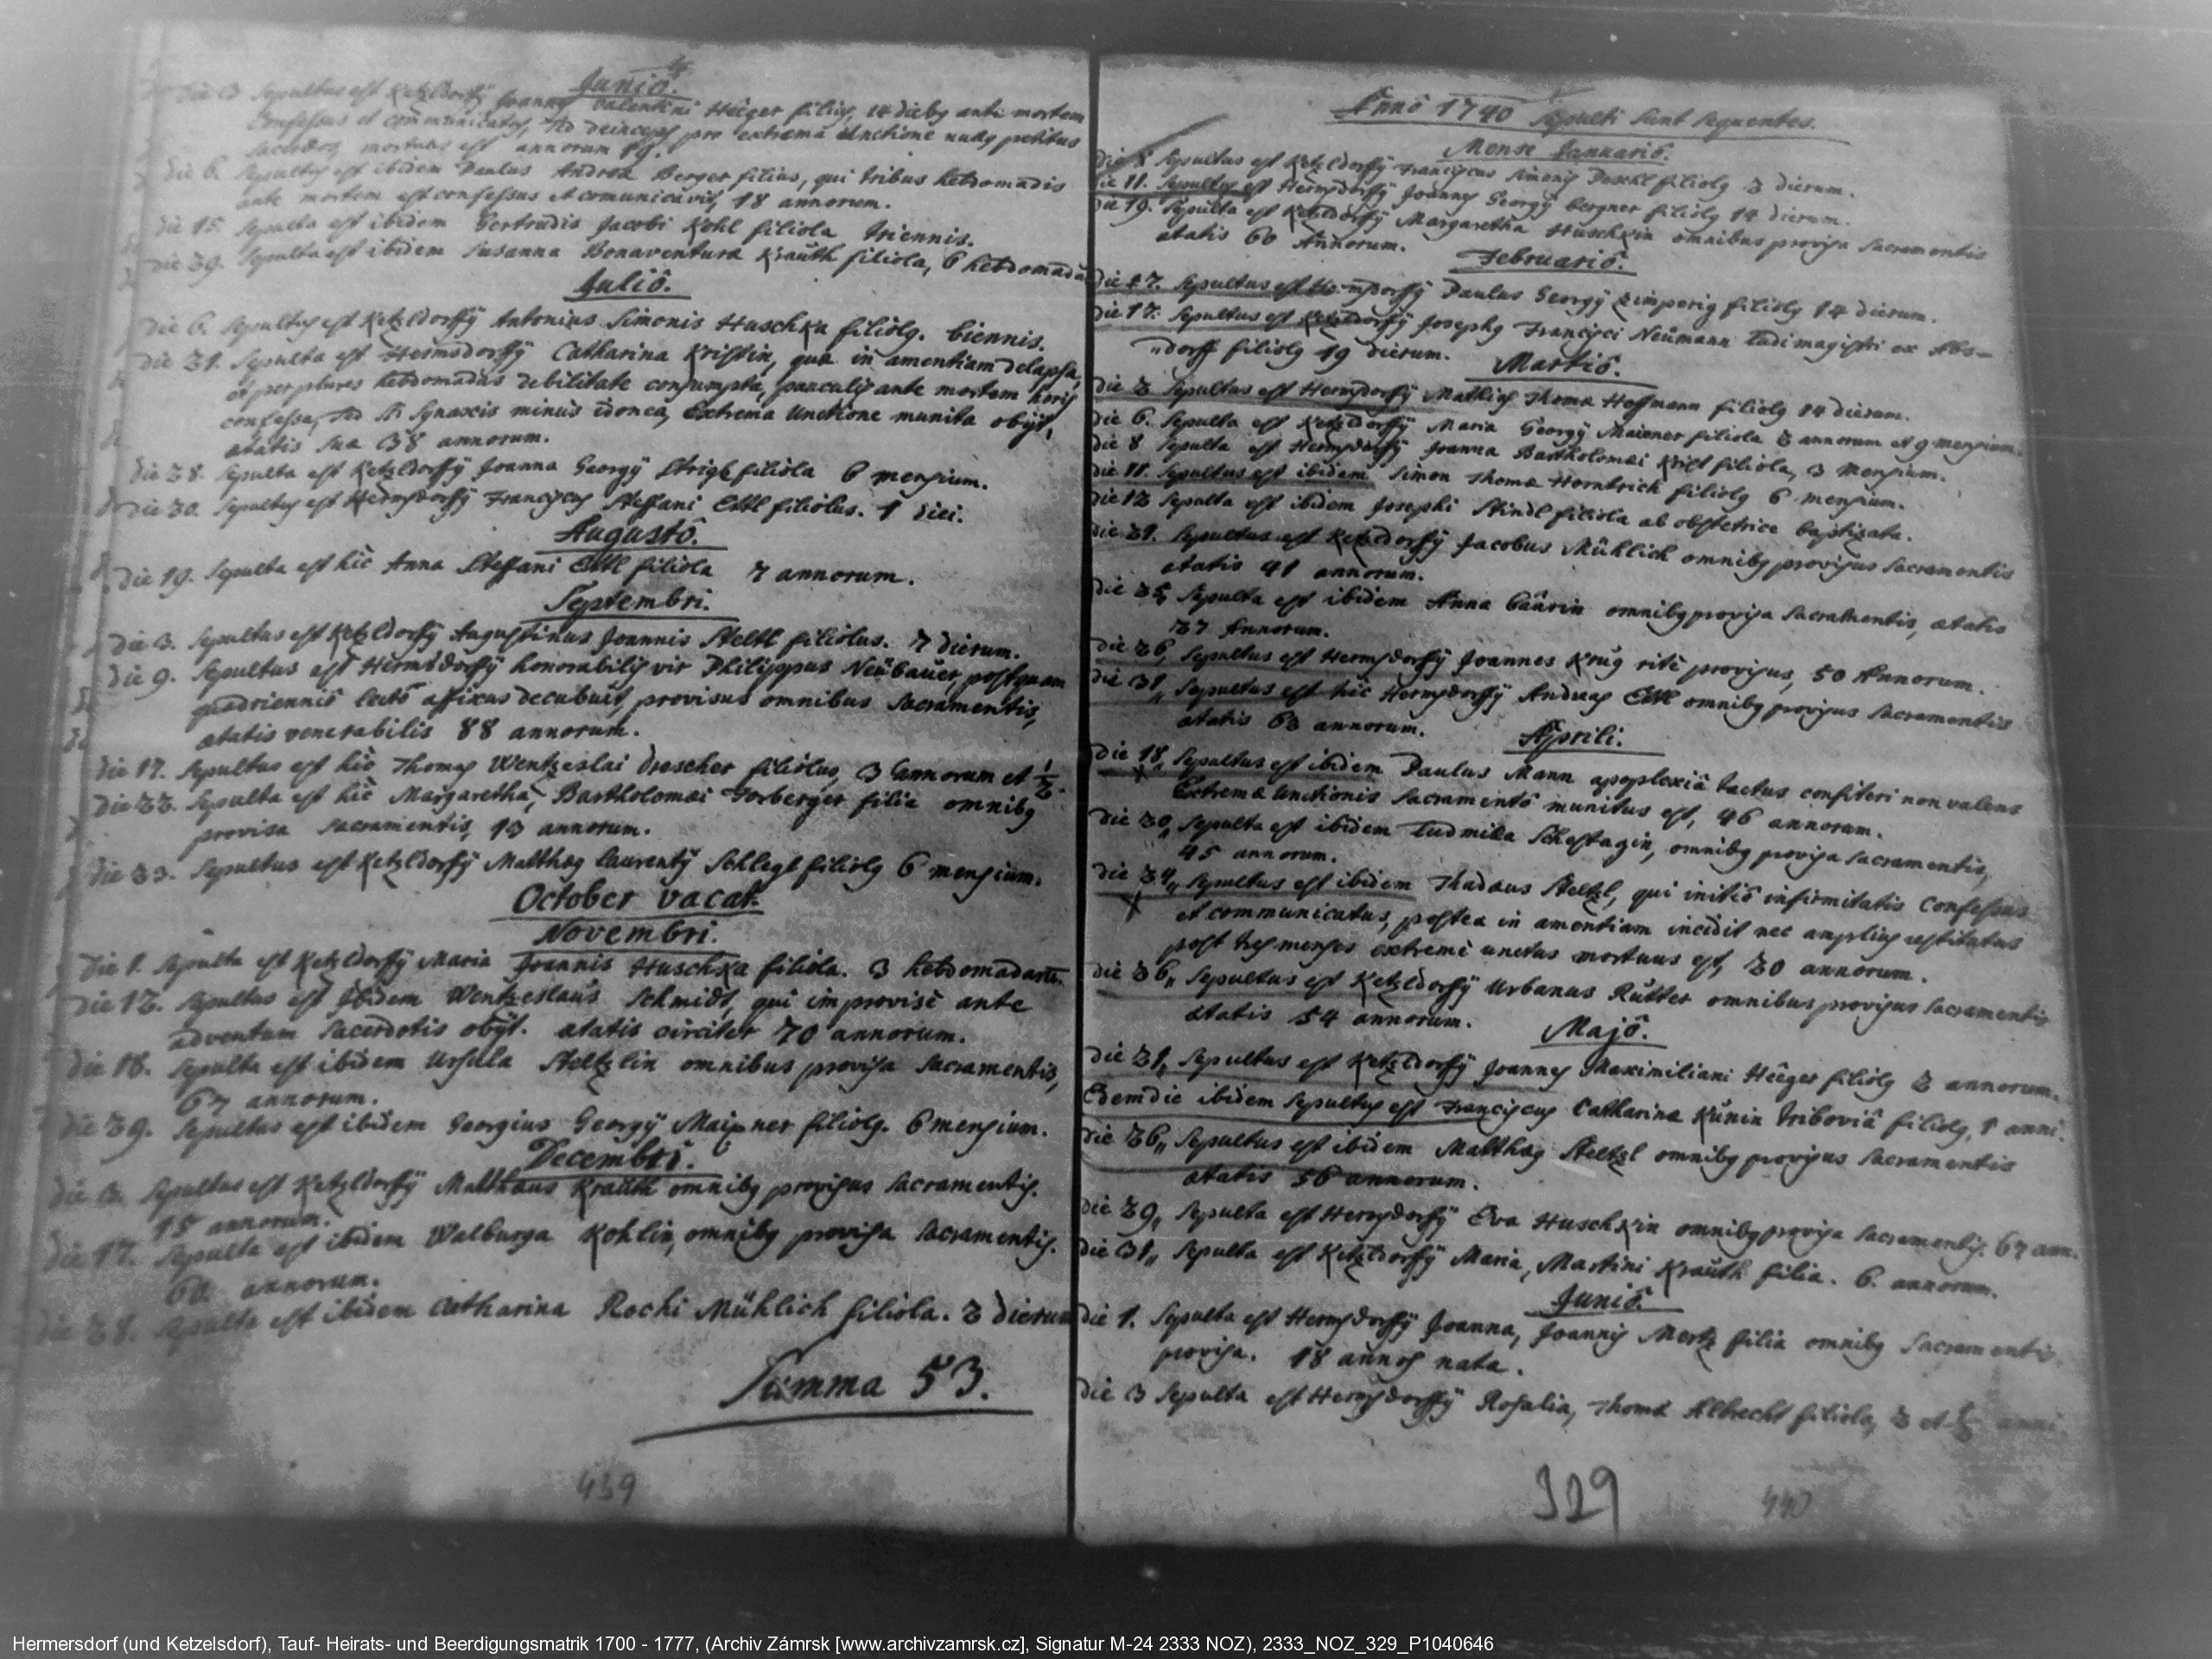 Junio.
Die 3 Sepultus est Ketzldorffÿ Joannes Valentini Heeger filius, 14 diebus ante mortem
Confessus et communicatus, sed deinceps pro extrema Unctione petitus
sacerdos, mortuus est annorum 19.
Die 6. Sepultus est ibidem Paulus Andreæ Berger filius, qui tribus hebdomadis
ante mortem est confessus et comunicavit, 18 annorum.
Die 15. Sepulta est ibidem Gertrudis Jacobi Kohl filiola triennis.
Die 29. Sepulta est ibidem Susanna Bonaventuræ Krauth filiola, 6 hebdomadū
Julio.
Die 6. Sepultus est Ketzldorffÿ Antonius Simonis Huschka filiolg. biennis.
Die 21. Sepulta est Hermsdorffÿ Catharina Kristin, quæ in amentiam delapsa,
et per plures hebdomadas debilitate consumpta, pauculis ante mortem horis
confessa, sed SS. Synaxis minus idonea, Extrema Unctione munita obijt,
ætatis suæ 38 annorum.
Die 28. Sepulta est Ketzldorffÿ Joanna Georgÿ Strigl filiola 6 mensium.
Die 30. Sepultus est Hermsdorffÿ Franciscus Steffani Ettl filiolus. 1 diei.
Augusto.
Die 19. Sepulta est hic Anna Steffani Ettl filiola 7 annorum.
Septembri.
Die 3. Sepultus est Ketzldorffÿ Augustinus Joannis Steltl filiolus. 7 dierum.
Die 9. Sepultus est Hermsdorffÿ honorabilis vir Philippus Neübauer, postquam
quadriennio lecto affixus decubuit, provisus omnibus Sacramentis,
ætatis venerabilis 88 annorum.
Die 17. Sepultus est hic Thomas Wentzeslai Drescher filiolus, 3 annorum et 1/2.
Die 22. Sepulta est hic Margaretha, Bartholomæi Forberger filia omnibg
provisa Sacramentis, 13 annorum.
Die 23. Sepultus est Ketzldorffÿ Matthæg Laurentÿ Schlegl filiolg 6 mensium.
October vacat.
Novembri.
Die 1. Sepulta est Ketzldorffÿ Maria Joannis Huschka filiola. 3 hebdomadarū.
Die 12. Sepultus est Ibidem Wentzeslaus Schmidt, qui improvisè ante
adventum Sacerdotis obijt. ætatis circiter 70 annorum.
Die 16. Sepulta est ibidem Ursula Steltzlin omnibus provisa Sacramentis,
67 annorum.
Die 29. Sepultus est ibidem Georgius Georgÿ Maixner filiolg. 6 mensium.
Decembri.
Die 3. Sepultus est Ketzldorffÿ Matthæus Krauth omnibg provisus Sacramentis.
15 annorum.
Die 17. Sepulta est ibidem Walburga Kohlin, omnibg provisa Sacramentis.
60. annorum.
Die 28. Sepulta est ibidem Catharina Rochi Mühlich filiola. 2 dierum
Summa 53.
439
Anno 1740 Sepulti sunt sequentes.
Mense Januario.
Die 8 Sepultus est Ketzldorffÿ Franciscus Simonis Peschl filiolg 2 dierum.
Die 11. Sepultus est Hermsdorffÿ Joannes Georgÿ Bergner filiolg 14 dierum.
Die 19. Sepulta est Ketzldorffÿ Margaretha Huschkin omnibus provisa Sacramentis
ætatis 60 Annorum.
Februario.
Die 7. Sepultus est Hermsdorffÿ Paulus Georgÿ Zimprig filiolg 14 dierum.
Die 17. Sepultus est Ketzldorffÿ Josephg Francisci Neümann Ludimagistri ex Abs-
„dorff filiolg 19 dierum.
Martio.
Die 2 Sepultus est Hermsdorffÿ Mathias Thomæ Hoffmann filiolg 14 dierum.
Die 6. Sepulta est Ketzldorffÿ Maria Georgÿ Maixner filiola 2 annorum et 9 mensium.
Die 8 Sepulta est Hermsdorffÿ Joanna Bartholomæi Krist filiola, 3 Mensium.
Die 11. Sepultus est ibidem Simon Thomæ Hornbrich filiolg 6 mensium.
Die 12 Sepulta est ibidem Josephi Stindl filiola ab obstetrice baptizata.
Die 21. Sepultus est Ketzldorffÿ Jacobus Mühlich omnibg provisus Sacramentis
ætatis 41 annorum.
Die 25, Sepulta est ibidem Anna Baurin omnibg provisa Sacramentis, ætatis
27 Annorum.
Die 26, Sepultus est Hermsdorffÿ Joannes Krug ritè provisus, 50 Annorum.
Die 31„ Sepultus est hic Hermsdorffÿ Andreas Ettl omnibg provisus Sacramentis
ætatis 63 annorum.
Aprili.
Die 18„ Sepultus est ibidem Paulus Mann apoplexiâ tactus confiteri non valens
Extremæ Unctionis Sacramentô munitus est, 46 annorum.
Die 20„ Sepulta est ibidem Ludmila Schestagin, omnibg provisa Sacramentis,
45 annorum.
Die 24„ Sepultus est ibidem Thadæus Steltzl, qui initiô infirmitatis Confessus
et communicatus, postea in amentiam incidit nec amplius restitutus
post tres menses extremè unctus mortuus est, 20 annorum.
Die 26„ Sepultus est Ketzldorffÿ Urbanus Rütter omnibus provisus Sacramentis
ætatis 54 annorum.
Majô.
Die 21„ Sepultus est Ketzldorffÿ Joannes Maximiliani Heeger filiolg 2 annorum.
Edem die ibidem Sepultus est Franciscus Catharinæ Künin Triboviâ filiolg, 1 anni.
Die 26„ Sepultus est ibidem Matthæg Steltzl omnibg provisus Sacramentis
ætatis 56 annorum.
Die 29„ Sepulta est Hermsdorffÿ Eva Huschkin omnibg provisa Sacramentis. 67 ann.
Die 31„ Sepulta est Ketzldorffÿ Maria, Martini Krauth filia. 6. annorum.
Juniô.
Die 1. Sepulta est Hermsdorffÿ Joanna, Joannis Mertz filia omnibg Sacramentis
provisa. 18 annos nata.
Die 3 Sepulta est Hermsdorffÿ Rosalia, Thomæ Albrecht filiola, 2 et 1/2 anni.
329
440
Hermersdorf (und Ketzelsdorf), Tauf- Heirats- und Beerdigungsmatrik 1700 - 1777, (Archiv Zámrsk [www.archivzamrsk.cz], Signatur M-24 2333 NOZ), 2333_NOZ_329_P1040646